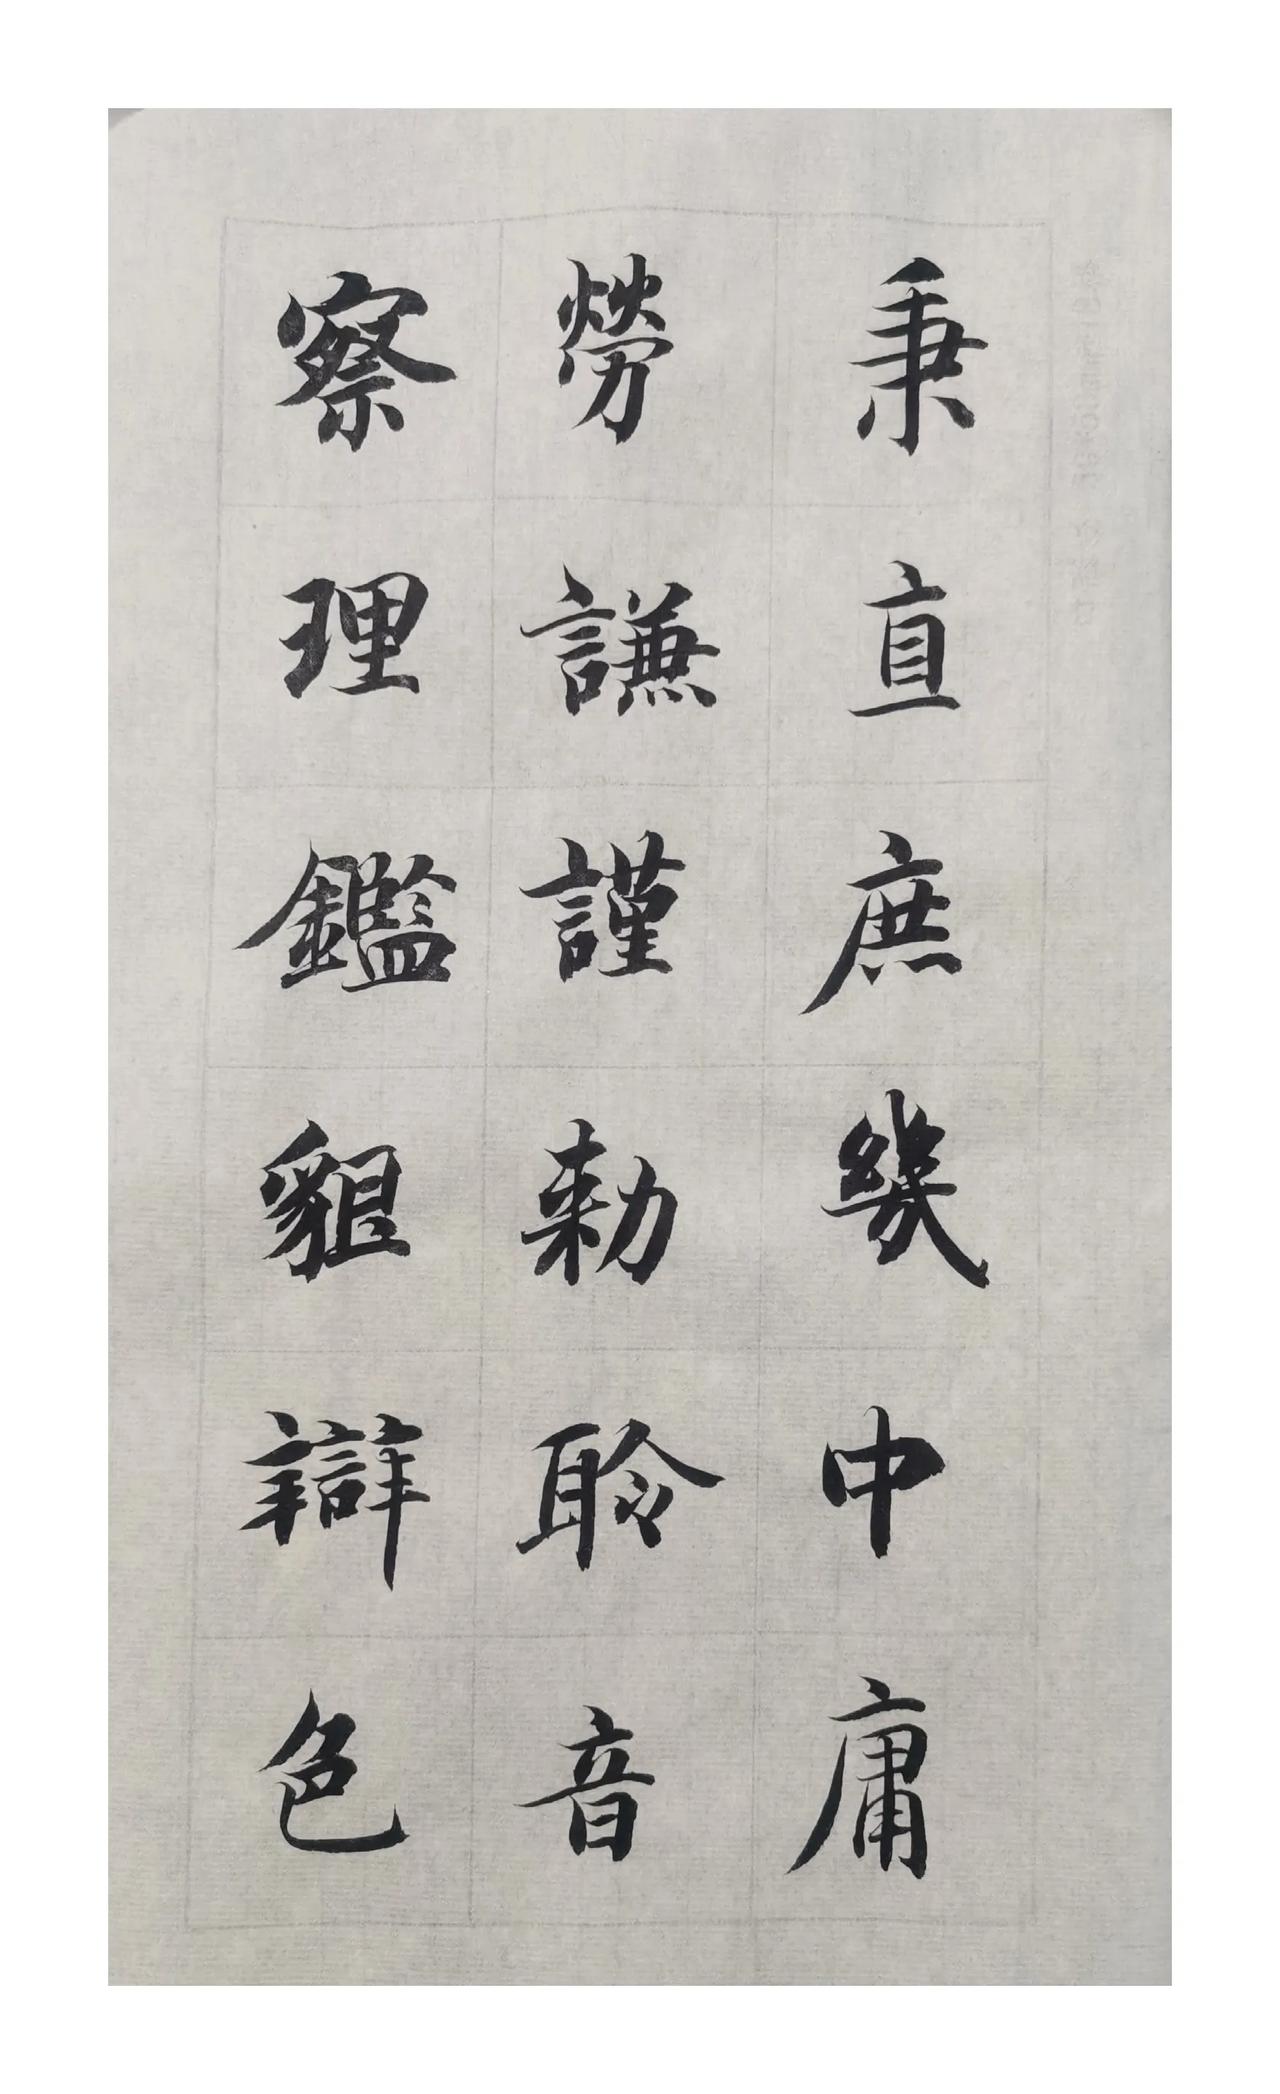 秉直庶幾中庸
勞謙謹勑聆音
察理鑑貌辯色